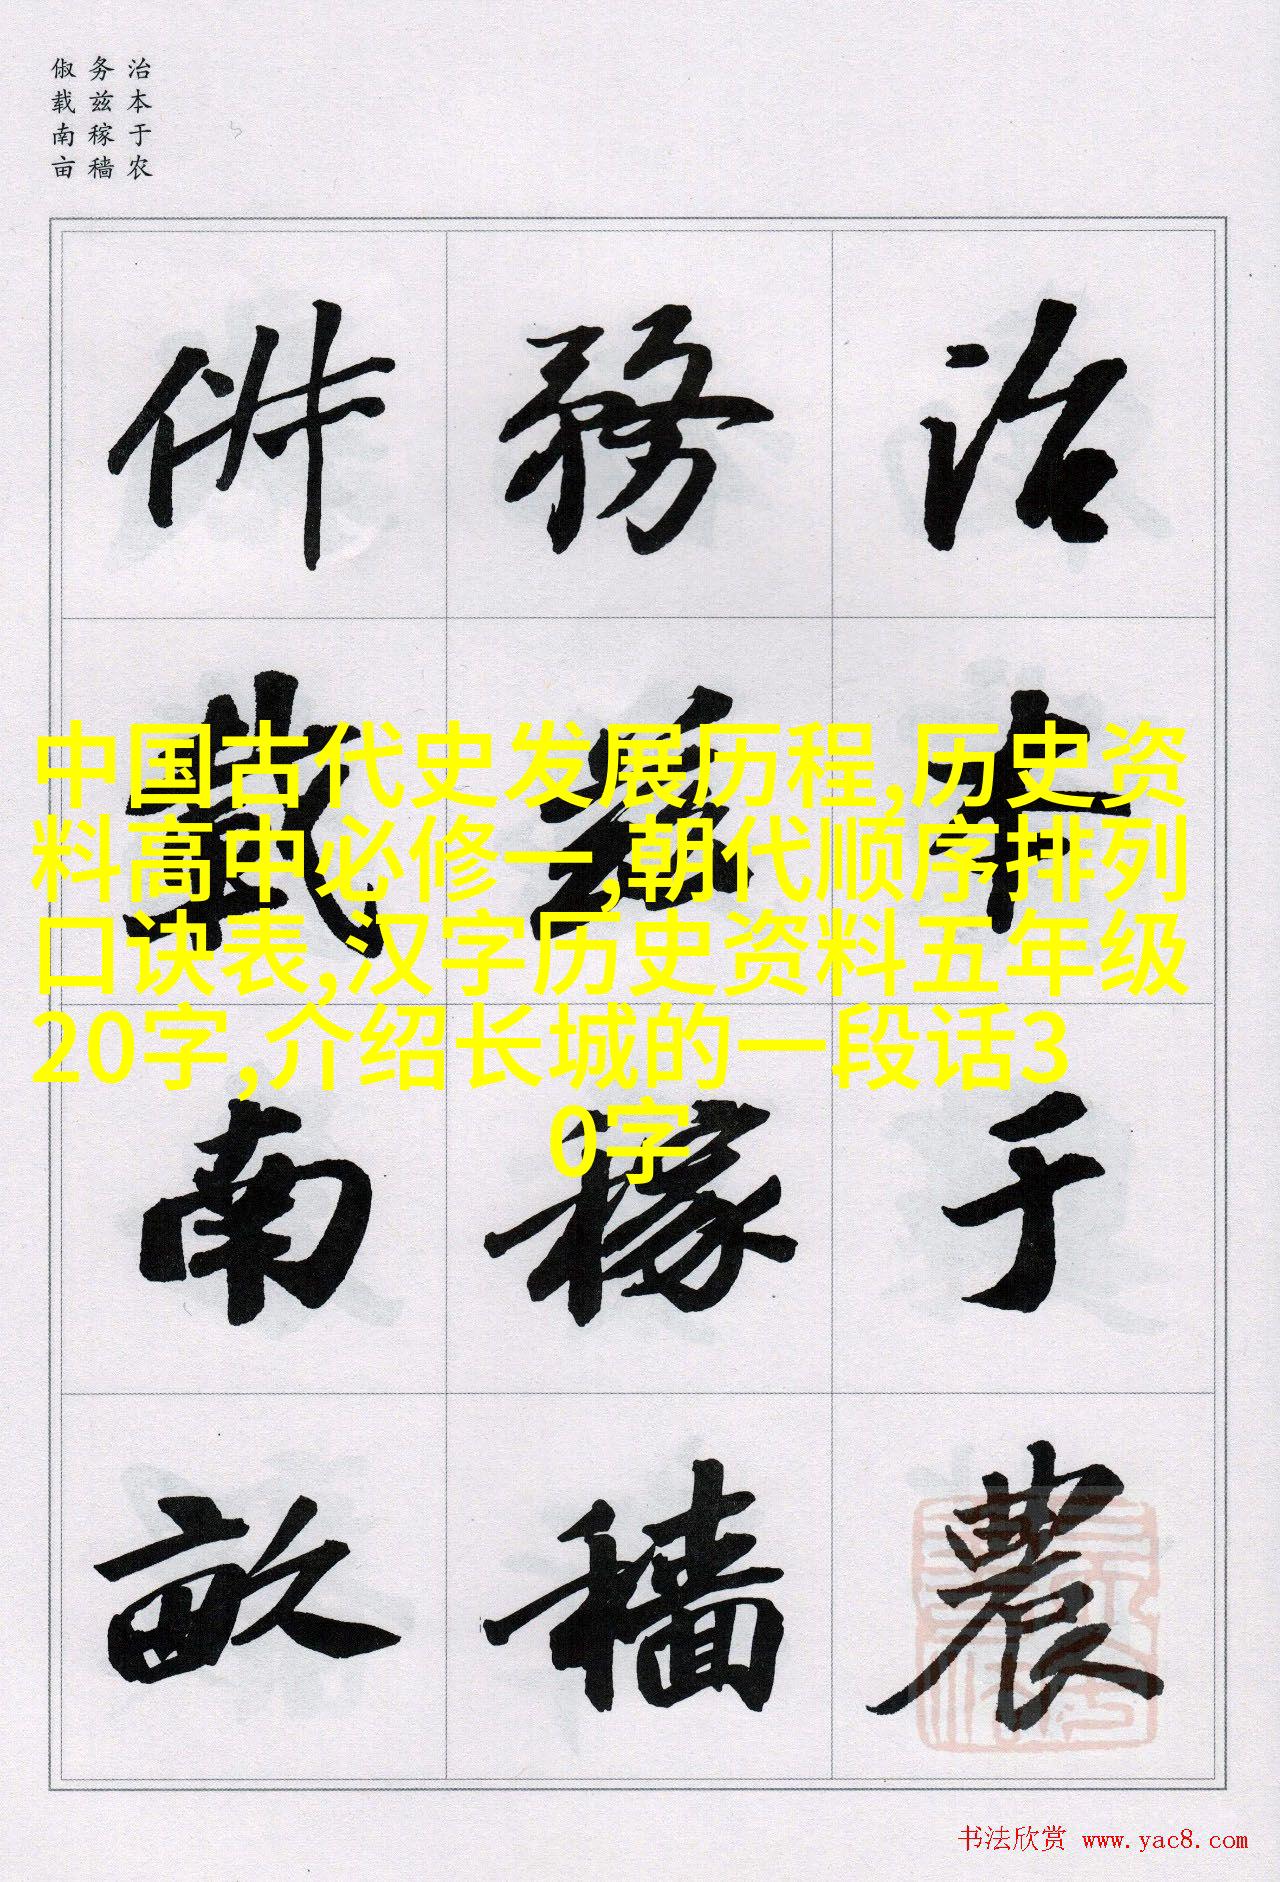 治本于农
务兹稼穑
俶载南亩
治本于農
務茲稼穡
俶載南畝
中国古代史发展历程,历史资
料高中必修一,朝代顺序排列
口诀表,汉字历史资料五年级
20字,介绍长城的一段话3
0字
书法欣赏 www.yac8.com